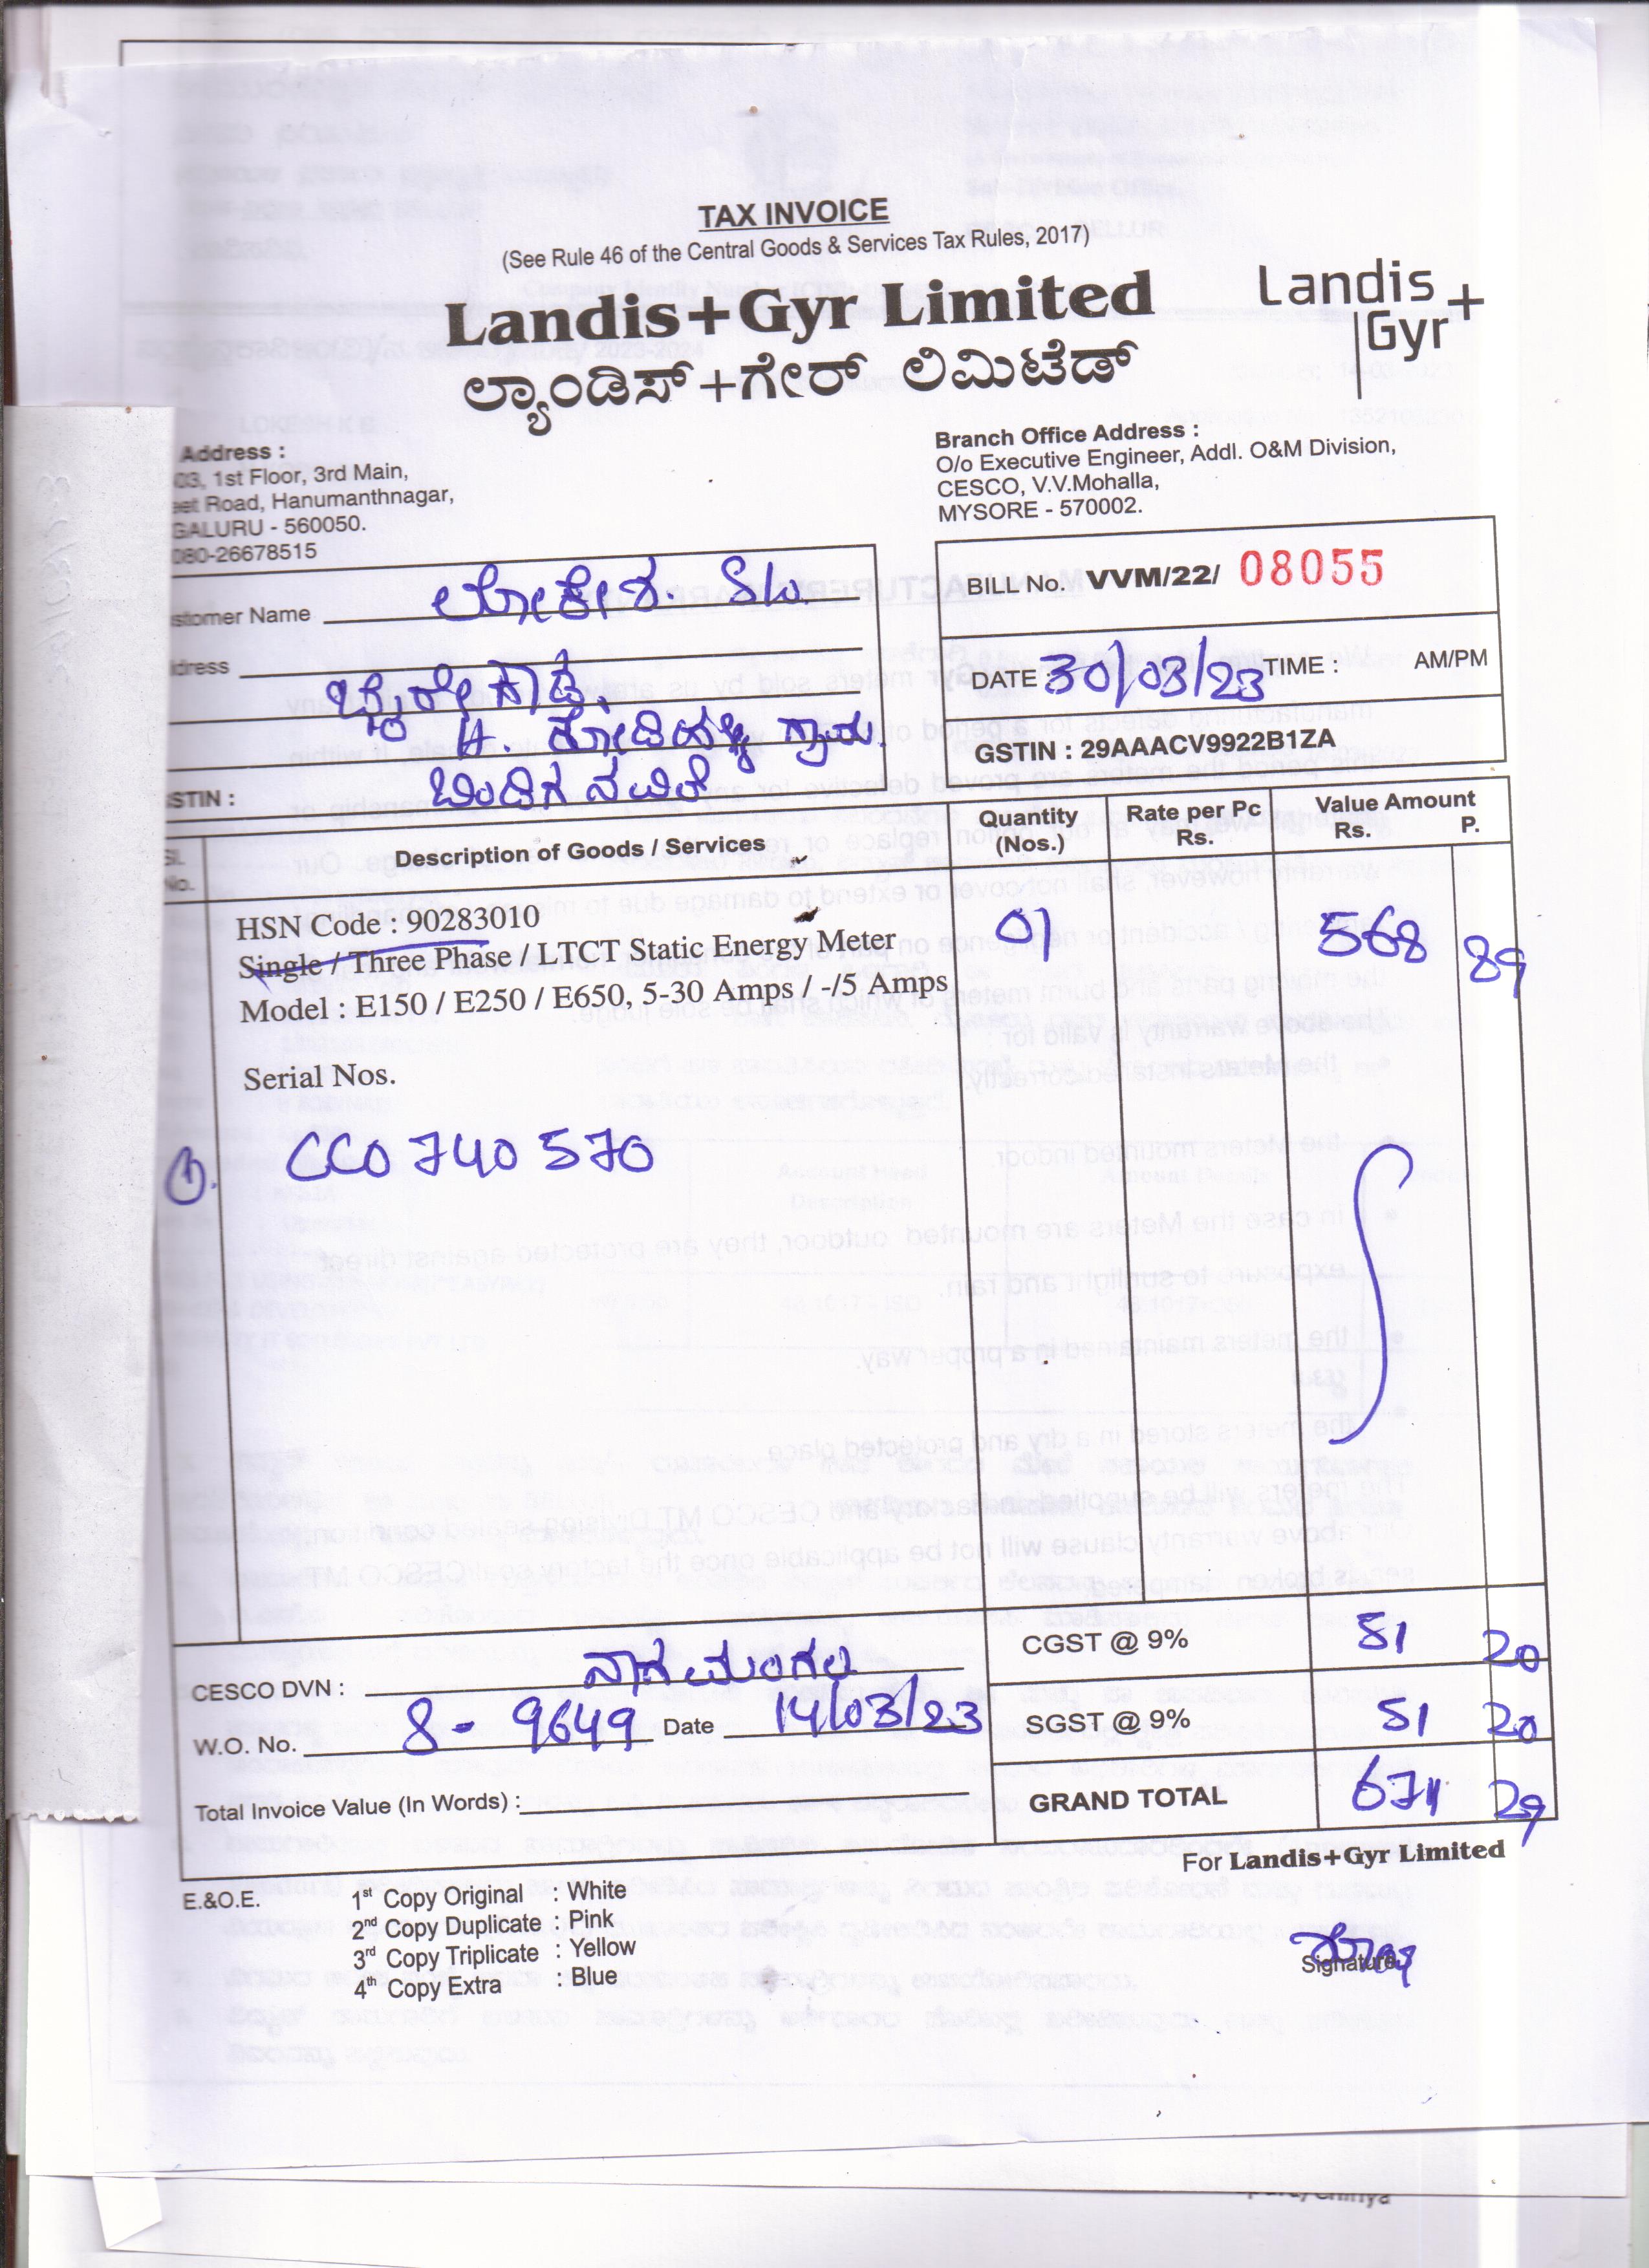 TAX INVOICE
(See Rule 46 of the Central Goods & Services Tax Rules, 2017)
Landis+Gyr Limited
ಲ್ಯಾಂಡಿಸ್+ಗೇರ್ ಲಿಮಿಟೆಡ್
Landis
Gyr+
Address :
03, 1st Floor, 3rd Main,
eet Road, Hanumanthnagar,
GALURU - 560050.
080-26678515
Branch Office Address :
O/o Executive Engineer, Addl. O&M Division,
CESCO, V.V.Mohalla,
MYSORE - 570002.
stomer Name ಲೋಕೇಶ. S/o.
dress
# ಗ್ರಾಮ.
ಬಿಂಡಿಗನವಿಲೆ
STIN :
BILL No. VVM/22/ 08055
DATE 30/03/23 TIME : AM/PM
GSTIN : 29AAACV9922B1ZA
Sl. No. Description of Goods / Services Quantity (Nos.) Rate per Pc Rs. Value Amount Rs. P.
HSN Code : 90283010 01 568 89
Single / Three Phase / LTCT Static Energy Meter
Model : E150 / E250 / E650, 5-30 Amps / -/5 Amps
Serial Nos.
1. CC0740570
CGST @ 9% 51 20
CESCO DVN : ನಾಗಮಂಗಲ
SGST @ 9% 51 20
W.O. No. 8 - 9649 Date 14/03/23
GRAND TOTAL 671 29
Total Invoice Value (In Words) :
For Landis+Gyr Limited
E.&O.E.
1st Copy Original : White
2nd Copy Duplicate : Pink
3rd Copy Triplicate : Yellow
4th Copy Extra : Blue
Signature